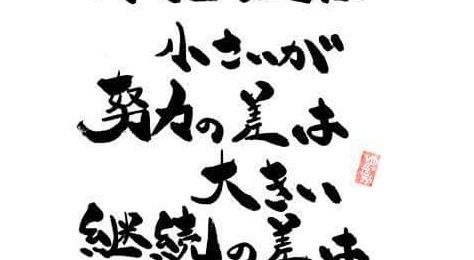 小さいが
努力の差は
大きい
継続の差は